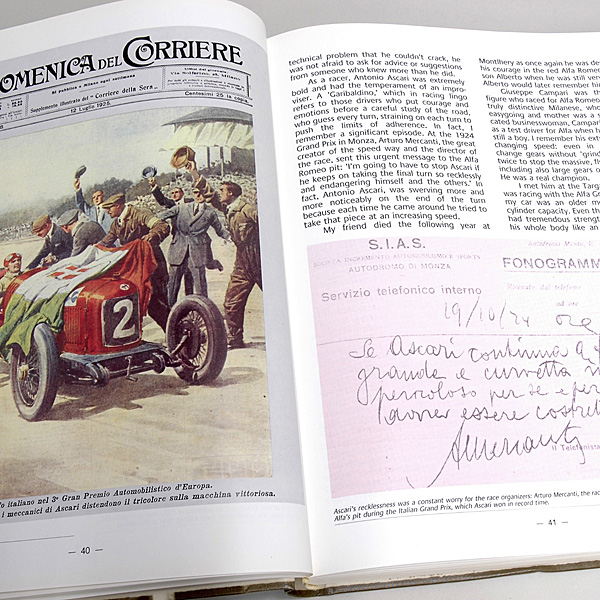 OMENICA DEL CORRIERE
Si pubblica a Milano ogni settimana
Supplemento illustrato del "Corriere della Sera"
Uffici del giornale:
Via Solferino, 28, Milano
12 Luglio 1925.
Centesimi 25 la copia
2
o italiano nel 3º Gran Premio Automobilistico d'Europa.
i meccanici di Ascari distendono il tricolore sulla macchina vittoriosa.
— 40 —
technical problem that he couldn't crack, he
was not afraid to ask for advice or suggestions
from someone who knew more than he did.
As a racer, Antonio Ascari was extremely
bold and had the temperament of an impro-
viser. A 'Garibaldino', which in racing lingo
refers to those drivers who put courage and
emotions before a careful study of the road,
who guess every turn, straining on each turn to
push the limits of adherence. In fact, I
remember a significant episode. At the 1924
Grand Prix in Monza, Arturo Mercanti, the great
creator of the speed way and the director of
the race, sent this urgent message to the Alfa
Romeo pit: 'I'm going to have to stop Ascari if
he keeps on taking the final turn so recklessly
and endangering himself and the others.' In
fact, Antonio Ascari, was swerving more and
more noticeably on the end of the turn
because each time he came around he tried to
take that piece at an increasing speed.
My friend died the following year at
Montlhery as once again he was de
his courage in the red Alfa Romeo
son Alberto when he was still ver
Alberto would later remember hi
Giuseppe Campari was th
figure who raced for Alfa Romeo
truly distinctive Milanese, who
easygoing and mother was a s
cated businesswoman, Campar
as a test driver for Alfa when h
still a boy. I remember his extr
changing speed: even in
change gears without 'grind
twice to stop the massive, fl
including also large gears o
He was a real champion.
I met him at the Targa
was racing with the Alfa Gr
my car was an older mo
cylinder capacity. Even th
had tremendous strength
his whole body like an
S.I.A.S.
SOCIETÀ INCREMENTO AUTOMOBILISMO E SPORTS
AUTODROMO DI MONZA
Servizio telefonico interno
FONOGRAMM
Ricevuto dal telefono
ad ore
19/10/24 ore
Se Ascari continua a
grande e curvetta
pericoloso per se e per
dovrer essere costret
AMercanti
Il Telefonista
Ascari's recklessness was a constant worry for the race organizers: Arturo Mercanti, the rac
Alfa's pit during the Italian Grand Prix, which Ascari won in record time.
— 41 —